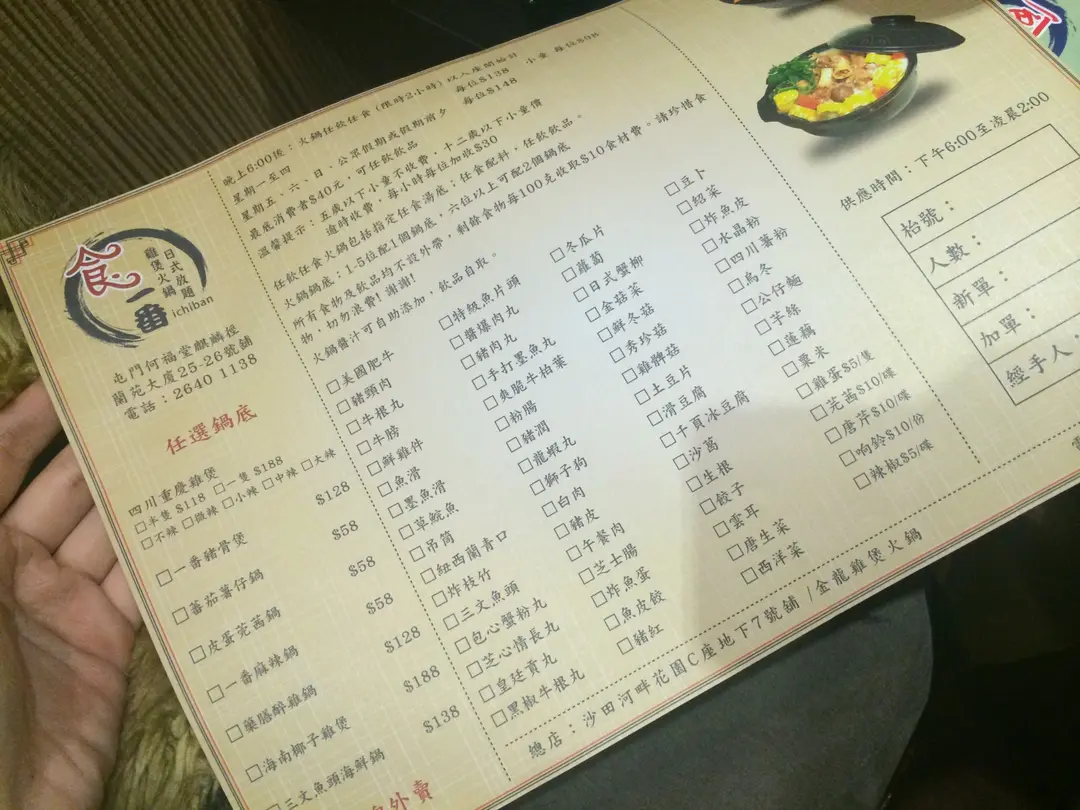 食一番
日式放題
雞煲火鍋
ichiban
屯門何福堂麒麟徑
蘭苑大廈25-26號舖
電話：2640 1138
任選鍋底
四川重慶雞煲
□半隻 $118 □一隻 $188
□不辣 □微辣 □小辣 □中辣 □大辣
□一番豬骨煲 $128
□蕃茄薯仔鍋 $58
□皮蛋芫茜鍋 $58
□一番麻辣鍋 $58
□藥膳醉雞鍋 $128
□海南椰子雞煲 $188
□三文魚頭海鮮鍋 $138
外賣
晚上6:00後：火鍋任飲任食 (限時2小時) 以入座開始計
星期一至四 每位$138 小童 每位$98
星期五、六、日、公眾假期或假期前夕 每位$148
最底消費者$40元，可任飲飲品
溫馨提示：五歲以下小童不收費，十二歲以下小童價
逾時收費，每小時每位加收$30
任飲任食火鍋包括指定任食湯底；任食配料，任飲飲品。
火鍋鍋底：1-5位配1個鍋底，六位以上可配2個鍋底
所有食物及飲品均不設外帶，剩餘食物每100克收取$10食材費。請珍惜食
物，切勿浪費！謝謝！
火鍋醬汁可自助添加，飲品自取。
□美國肥牛
□豬頸肉
□牛根丸
□牛膀
□鮮雞件
□魚滑
□墨魚滑
□草鯇魚
□吊筒
□紐西蘭青口
□炸枝竹
□三文魚頭
□包心蟹粉丸
□芝心情長丸
□皇廷貢丸
□黑椒牛根丸
□特級魚片頭
□醬爆肉丸
□豬肉丸
□手打墨魚丸
□爽脆牛柏葉
□粉腸
□豬潤
□龍蝦丸
□獅子狗
□白肉
□豬皮
□午餐肉
□芝士腸
□炸魚蛋
□魚皮餃
□豬紅
□冬瓜片
□蘿蔔
□日式蟹柳
□金菇菜
□鮮冬菇
□秀珍菇
□雞髀菇
□土豆片
□滑豆腐
□千頁冰豆腐
□沙葛
□生根
□餃子
□雲耳
□唐生菜
□西洋菜
□豆卜
□紹菜
□炸魚皮
□水晶粉
□四川薯粉
□烏冬
□公仔麵
□芋絲
□蓮藕
□粟米
□雞蛋$5/隻
□芫茜$10/碟
□唐芹$10/碟
□响鈴$10/份
□辣椒$5/碟
總店：沙田河畔花園C座地下7號舖 / 金龍雞煲火鍋
供應時間：下午6:00至凌晨2:00
枱號：
人數：
新單：
加單：
經手人：